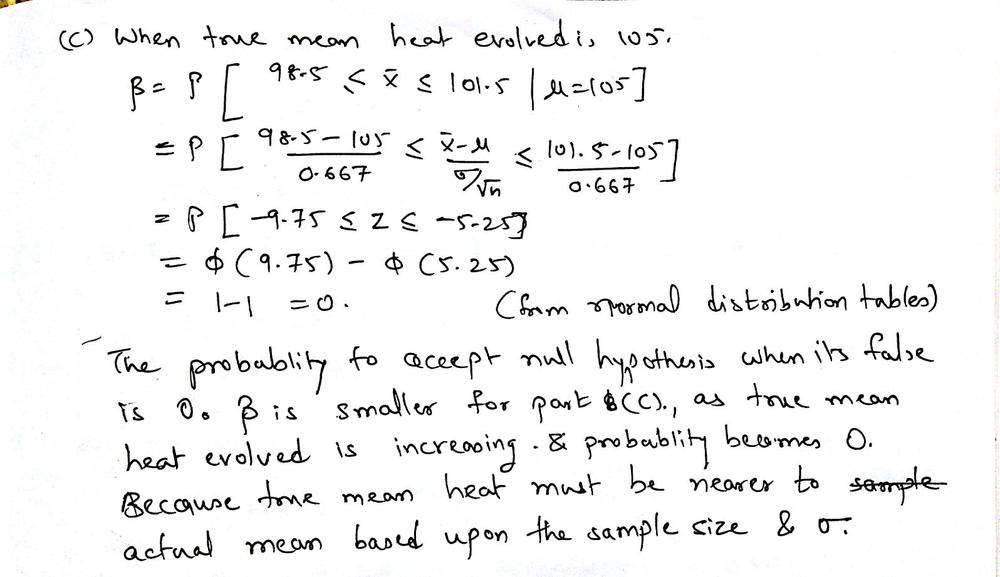 (c) When true mean heat evolved is 105.
β = P [ 98.5 ≤ x̄ ≤ 101.5 | μ=105 ]
= P [ (98.5 - 105)/0.667 ≤ (x̄-μ)/(σ/√n) ≤ (101.5-105)/0.667 ]
= P [ -9.75 ≤ Z ≤ -5.25 ]
= ϕ (9.75) - ϕ (5.25)
= 1-1 = 0. (from normal distribution tables)
The probablity to accept null hypothesis when its false
is 0. β is smaller for part (C)., as true mean
heat evolved is increasing. & probablity becomes 0.
Because true mean heat must be nearer to sample
actual mean based upon the sample size & σ.